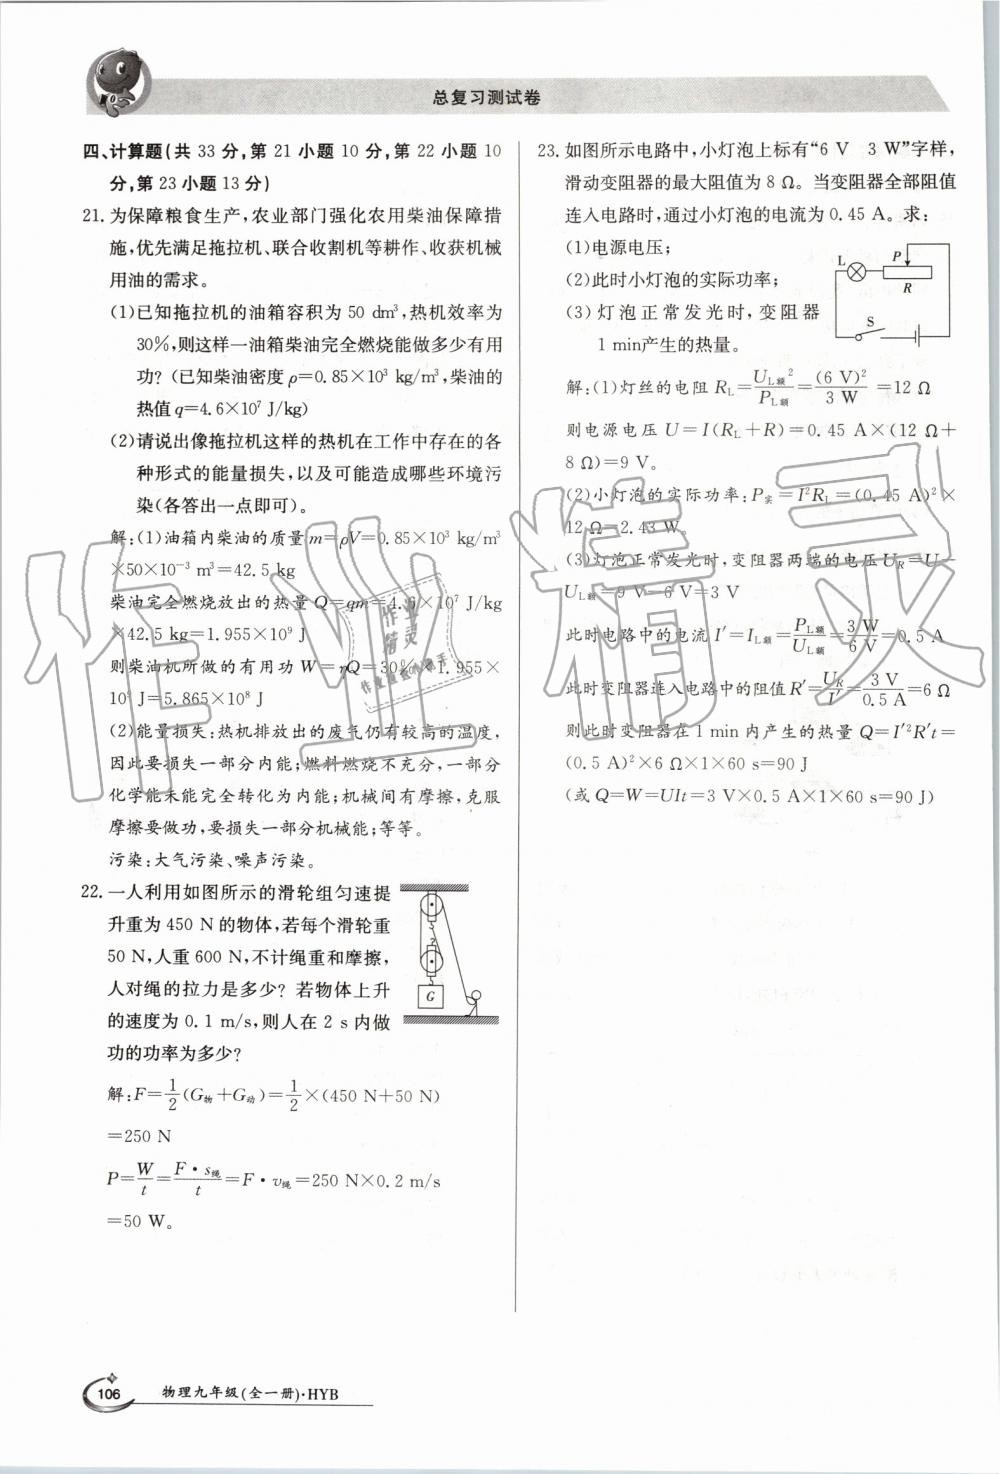 总复习测试卷
四、计算题(共 33 分,第 21 小题 10 分,第 22 小题 10
分,第 23 小题 13 分)
21. 为保障粮食生产,农业部门强化农用柴油保障措
施,优先满足拖拉机、联合收割机等耕作、收获机械
用油的需求。
(1)已知拖拉机的油箱容积为 50 dm³,热机效率为
30%,则这样一油箱柴油完全燃烧能做多少有用
功? (已知柴油密度 ρ=0.85×10³ kg/m³,柴油的
热值 q=4.6×10⁷ J/kg)
(2)请说出像拖拉机这样的热机在工作中存在的各
种形式的能量损失,以及可能造成哪些环境污
染(各答出一点即可)。
解:(1)油箱内柴油的质量 m=ρV=0.85×10³ kg/m³
×50×10⁻³ m³=42.5 kg
柴油完全燃烧放出的热量 Q=qm=4.6×10⁷ J/kg
×42.5 kg=1.955×10⁹ J
则柴油机所做的有用功 W=ηQ=30%×1.955×
10⁹ J=5.865×10⁸ J
(2)能量损失:热机排放出的废气仍有较高的温度,
因此要损失一部分内能;燃料燃烧不充分,一部分
化学能未能完全转化为内能;机械间有摩擦,克服
摩擦要做功,要损失一部分机械能;等等。
污染:大气污染、噪声污染。
22. 一人利用如图所示的滑轮组匀速提
升重为 450 N 的物体,若每个滑轮重
50 N,人重 600 N,不计绳重和摩擦,
人对绳的拉力是多少? 若物体上升
的速度为 0.1 m/s,则人在 2 s 内做
功的功率为多少?
G
解:F=1/2(G物+G动)=1/2×(450 N+50 N)
=250 N
P=W/t=F·s绳/t=F·v绳=250 N×0.2 m/s
=50 W。
23. 如图所示电路中,小灯泡上标有“6 V 3 W”字样,
滑动变阻器的最大阻值为 8 Ω。当变阻器全部阻值
连入电路时,通过小灯泡的电流为 0.45 A。求:
(1)电源电压;
(2)此时小灯泡的实际功率;
(3)灯泡正常发光时,变阻器
1 min产生的热量。
L
P
R
S
解:(1)灯丝的电阻 RL=UL额²/PL额=(6 V)²/3 W=12 Ω
则电源电压 U=I(RL+R)=0.45 A×(12 Ω+
8 Ω)=9 V。
(2)小灯泡的实际功率:P实=I²RL=(0.45 A)²×
12 Ω=2.43 W。
(3)灯泡正常发光时,变阻器两端的电压 UR=U-
UL额=9 V-6 V=3 V
此时电路中的电流 I′=IL额=PL额/UL额=3 W/6 V=0.5 A
此时变阻器连入电路中的阻值 R′=UR/I′=3 V/0.5 A=6 Ω
则此时变阻器在 1 min 内产生的热量 Q=I′²R′t=
(0.5 A)²×6 Ω×1×60 s=90 J
(或 Q=W=UIt=3 V×0.5 A×1×60 s=90 J)
作业精灵
106
物理九年级(全一册)·HYB